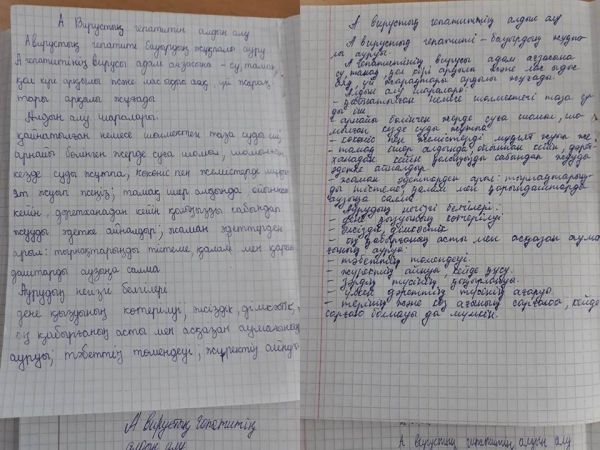 А Вирустық гепатитің алдын алу
А вирустық гепатиті бауырдың жұқпалы ауру.
А гепатитінің вирусы адам ағзасына - су, тамақ,
қол кірі арқылы және лас ыдыс аяқ, үй жиһаз
тары арқылы жұғады
Алдын алу шаралары:
қайнатылған немесе шөлмектегі таза суды іш,
арнайы бөлінген жерде суға шомыл, шомылған
кезде суды жұтпа, көкөніс пен жемістерде мұқи-
ят жуып жеңіз; тамақ ішер алдында ойыннан
кейін, дәретханадан кейін қолыңызды сабындап
жууды әдетке айналдыр; жаман әдеттерден
арыл: тырнақтарыңды тістеме, қалам мен қарын
даштарды аузыңа салма
Аурудың негізгі белгілері
дене қызуының көтерілуі, әлсіздік,
оң қабырғаның асты мен асқазан аумағының
ауруы, тәбеттің төмендеуі, жүректің айнуы
А вирустың гепатитің
алдын алу
А вирустық гепатитінің алдын алу
А вирустық гепатиті - бауырдың жұқпа-
лы ауруы.
А гепатитінің вирусы адам ағзасына
су, тамақ, қол кірі арқылы және лас ыдыс
аяқ, үй жиһаздары арқылы жұғады.
Алдын алу шаралары:
- қайнатылған немесе шөлмектегі таза су-
ды іш.
- арнайы бөлінген жерде суға шомыл, шо-
мылған кезде суды жұтпа.
- көкөніс пен жемістерді мұқият жуып же.
- тамақ ішер алдында, ойыннан кейін, дәрет-
ханадан кейін қолыңызды сабындап жууды
әдетке айналдыр.
- жаман әдеттерден арыл: тырнақтарың-
ды тістеме, қалам мен қарындаштарды
аузыңа салма.
Аурудың негізгі белгілері:
- дене қызуының көтерілуі
- әлсіздік,
- оң қабырғаның асты мен асқазан аума-
ғының ауруы.
- тәбеттің төмендеуі.
- жүректің айнуы, кейде құсу.
- зәрдің түсінің қоңырлануы.
- үлкен дәреттің түсінің ағаруы.
- терінің және көз ағының сарғаюы, кейде
сарғаю болмауы да мүмкін.
А вирустық гепатитің алдын алу